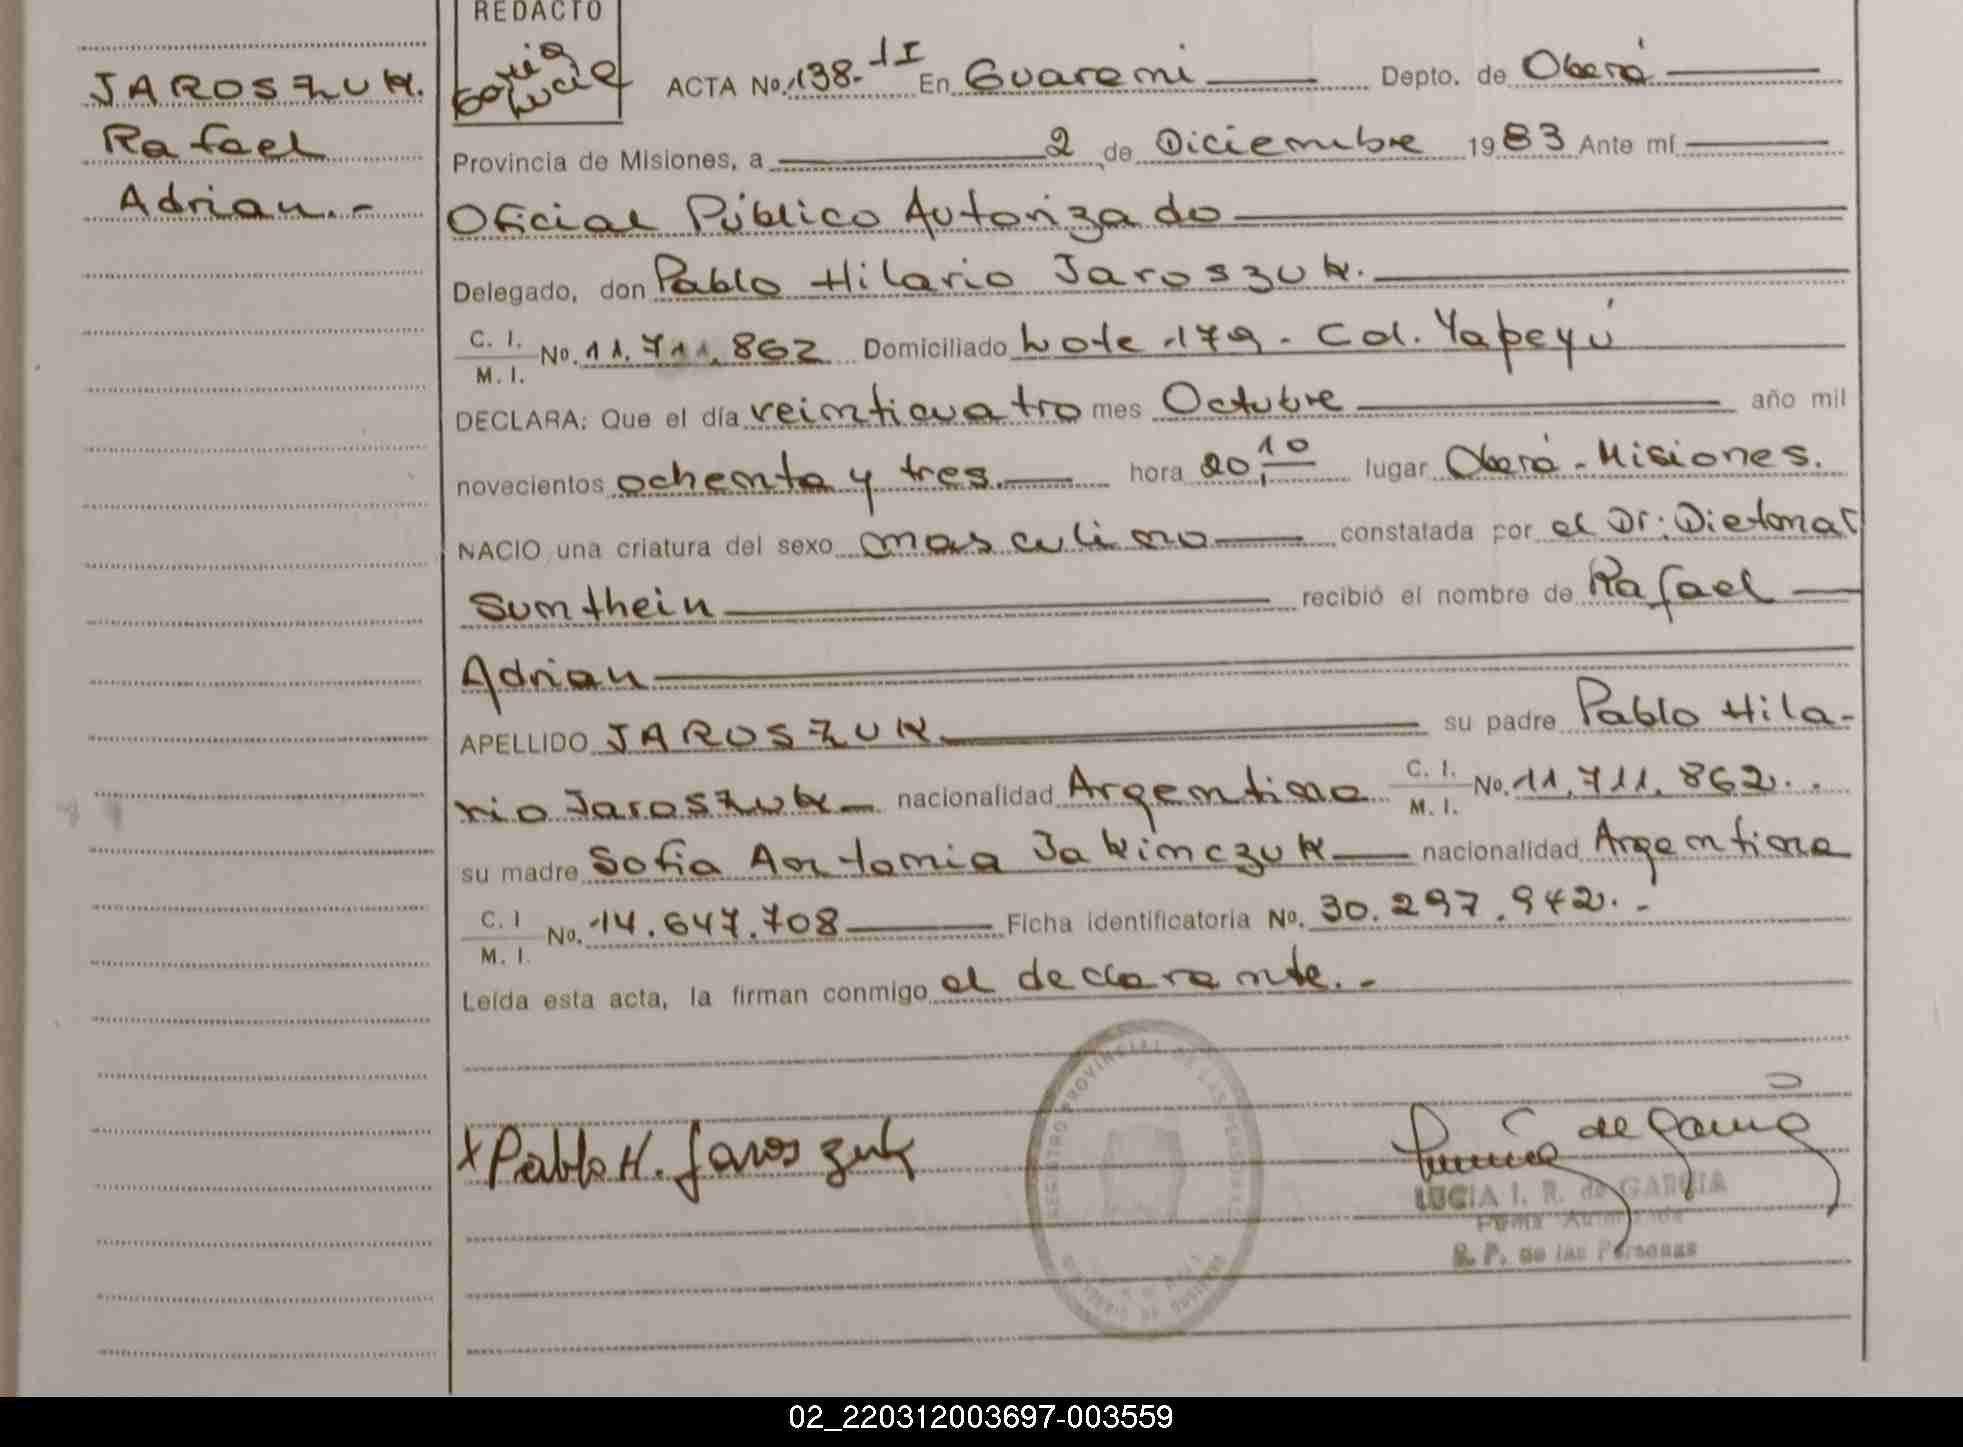 REDACTO
García
Lucía
JAROSZUK.
Rafael
Adrian.-
ACTA No. 138-II En Guaraní Depto. de Oberá
Provincia de Misiones, a 2 de Diciembre 1983 Ante mí
Oficial Público Autorizado
Delegado, don Pablo Hilario Jaroszuk.
C. I.
M. I. No. 11.711.862 Domiciliado Lote 179 - Col. Yapeyú
DECLARA: Que el día veinticuatro mes Octubre año mil
novecientos ochenta y tres. hora 20,10 lugar Oberá - Misiones.
NACIO una criatura del sexo masculino constatada por el Dr. Dietonat
Sumthein recibió el nombre de Rafael
Adrian
APELLIDO JAROSZUK su padre Pablo Hila-
rio Jaroszuk nacionalidad Argentina C. I.
M. I. No. 11.711.862.
su madre Sofia Antonia Jakimczuk nacionalidad Argentina
C. I
M. I. No. 14.647.708 Ficha identificatoria No. 30.297.942.-
Leída esta acta, la firman conmigo el declarante.-
x Pablo H. Jaroszuk
Lucía de García
LUCIA I. R. de GARCIA
Firma Autorizada
R. P. de las Personas
REGISTRO PROVINCIAL DE LAS PERSONAS
02_220312003697-003559